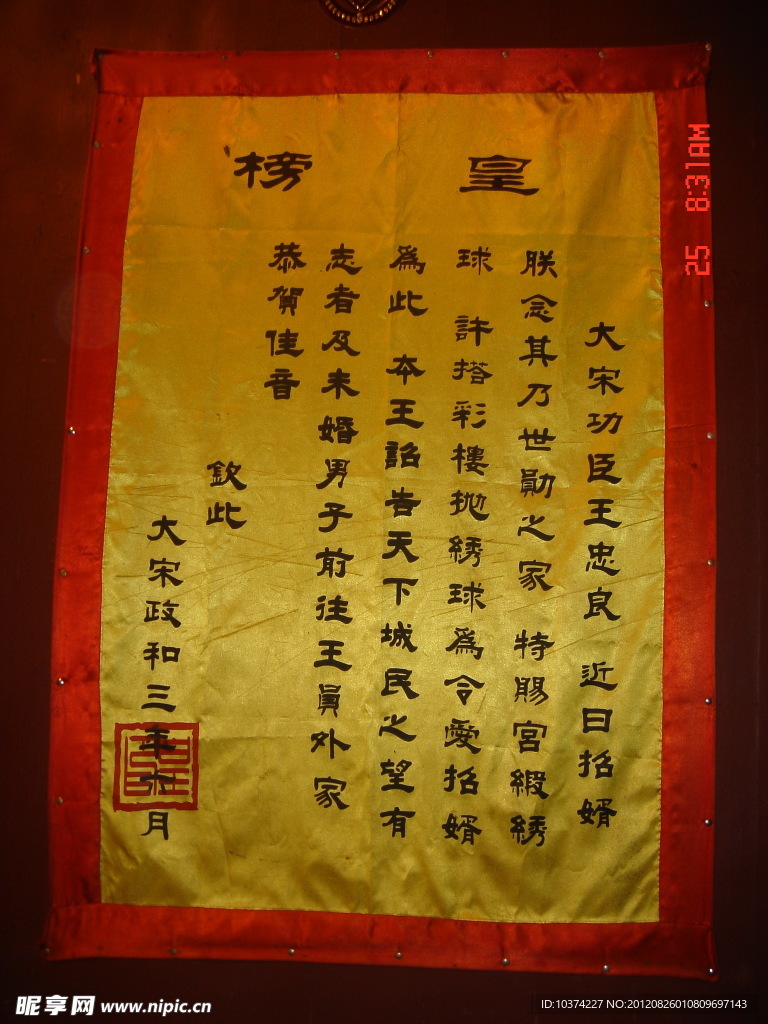 皇榜
大宋功臣王忠良 近日招婿
朕念其乃世勛之家 特賜宮緞綉
球 許搭彩樓抛綉球爲令愛招婿
爲此 本王詔告天下城民之望有
志者及未婚男子前往王員外家
恭賀佳音
欽此
大宋政和三年六月
25 8:31AM
昵享网 www.nipic.cn
ID:10374227 NO:20120826010809697143